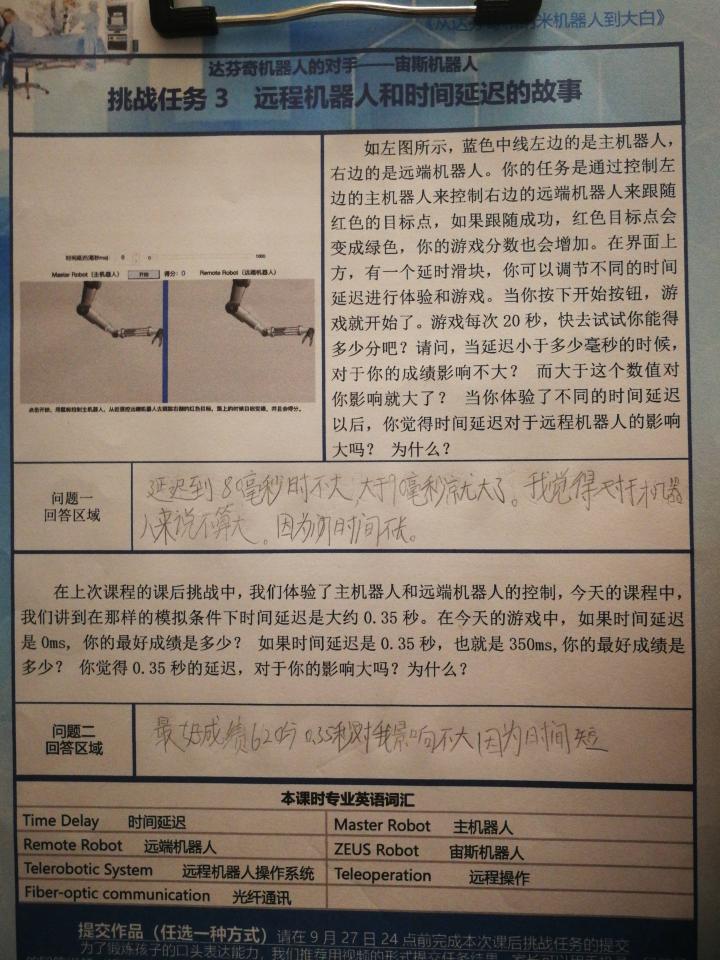 米机器人到大白》
达芬奇机器人的对手——宙斯机器人
挑战任务 3 远程机器人和时间延迟的故事
时间延迟(毫秒ms) 0 0 1000
Master Robot（主机器人） 开始 得分：0 Remote Robot（远端机器人）
如左图所示，蓝色中线左边的是主机器人，
右边的是远端机器人。你的任务是通过控制左
边的主机器人来控制右边的远端机器人来跟随
红色的目标点，如果跟随成功，红色目标点会
变成绿色，你的游戏分数也会增加。在界面上
方，有一个延时滑块，你可以调节不同的时间
延迟进行体验和游戏。当你按下开始按钮，游
戏就开始了。游戏每次 20 秒，快去试试你能得
多少分吧？请问，当延迟小于多少毫秒的时候，
对于你的成绩影响不大？ 而大于这个数值对
你影响就大了？ 当你体验了不同的时间延迟
以后，你觉得时间延迟对于远程机器人的影响
大吗？ 为什么？
问题一
回答区域
延迟到 80毫秒时不大，大于90毫秒就大了。我觉得对于机器
人来说不算大。因为时间不长。
在上次课程的课后挑战中，我们体验了主机器人和远端机器人的控制，今天的课程中，
我们讲到在那样的模拟条件下时间延迟是大约 0.35 秒。在今天的游戏中，如果时间延迟
是 0ms，你的最好成绩是多少？ 如果时间延迟是 0.35 秒，也就是 350ms,你的最好成绩是
多少？ 你觉得 0.35 秒的延迟，对于你的影响大吗？为什么？
问题二
回答区域
最好成绩620分 0.35秒对我影响不大因为时间短
本课时专业英语词汇
Time Delay 时间延迟
Master Robot 主机器人
Remote Robot 远端机器人
ZEUS Robot 宙斯机器人
Telerobotic System 远程机器人操作系统
Teleoperation 远程操作
Fiber-optic communication 光纤通讯
提交作品（任选一种方式）请在 9 月 27 日 24 点前完成本次课后挑战任务的提交
为了锻炼孩子的口头表达能力，我们推荐用视频的形式提交任务结果